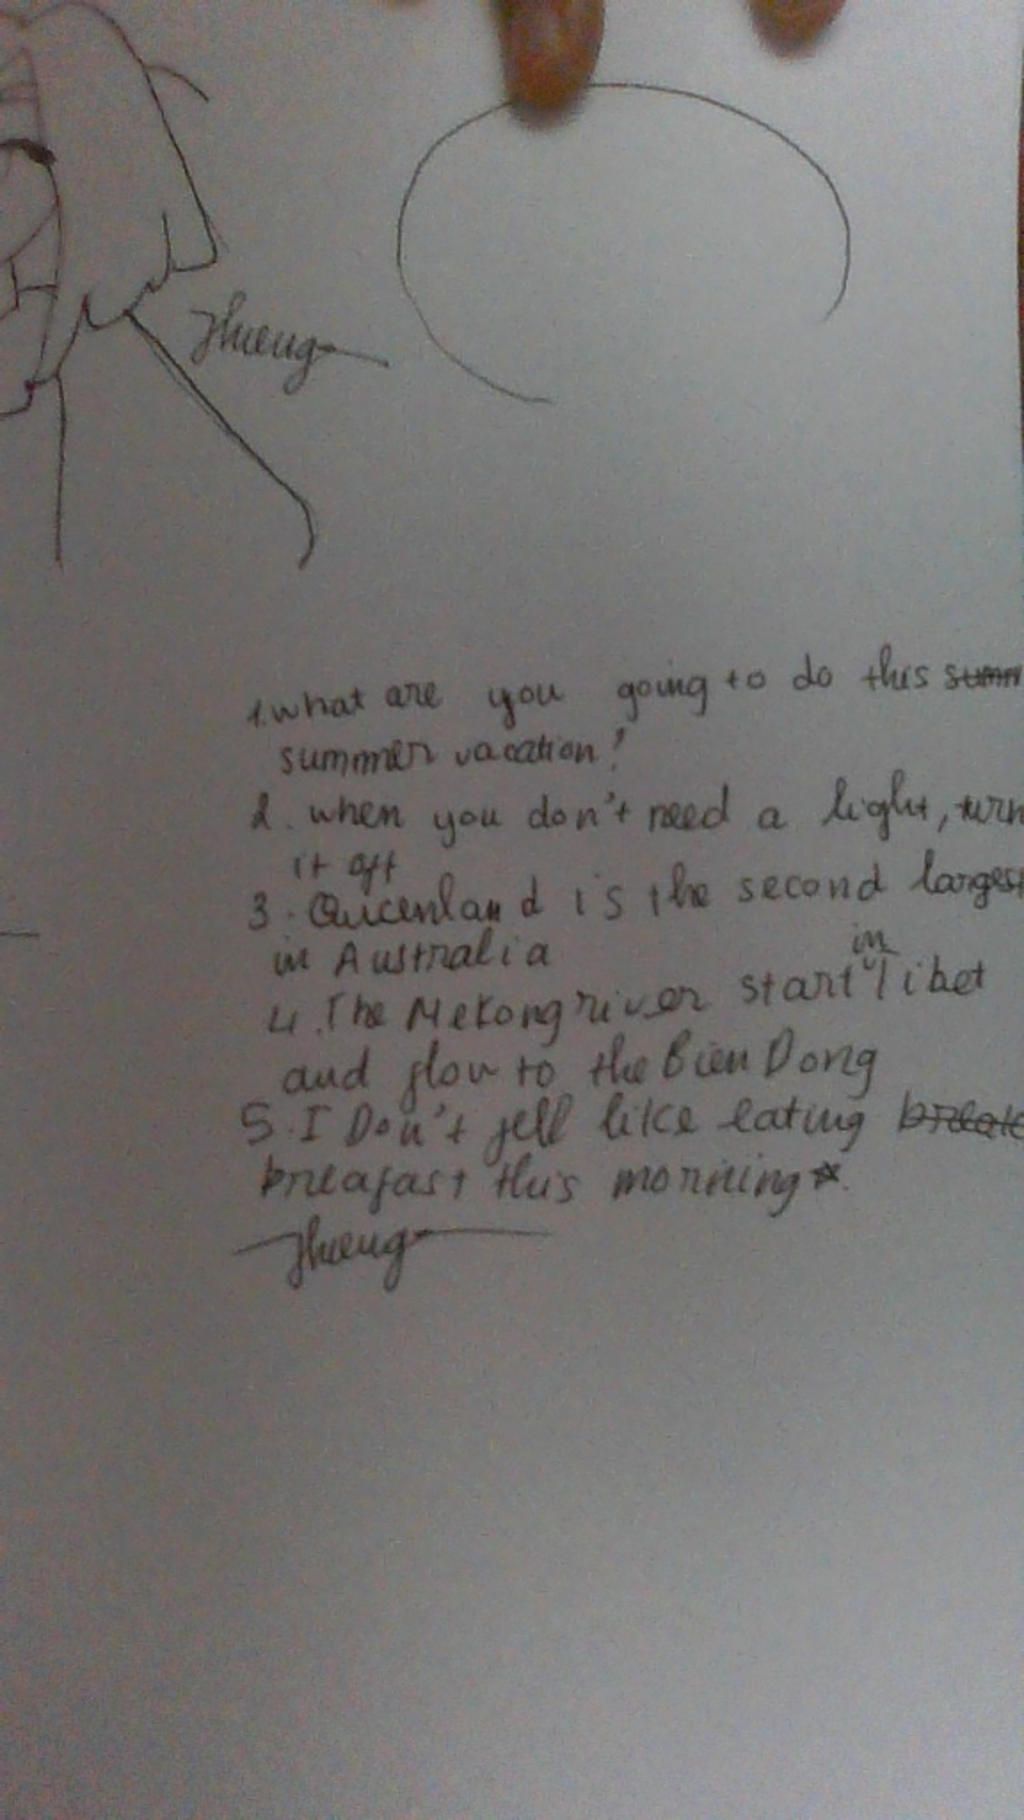 Thieng
1. what are you going to do this summ
summer vacation?
2. when you don't need a light, turn
it off
3. Queenland is the second largest
in Australia
in
4. The Mekong river start Tibet
and flow to the Bien Dong
5. I Don't fell like eating break
breafast this morning